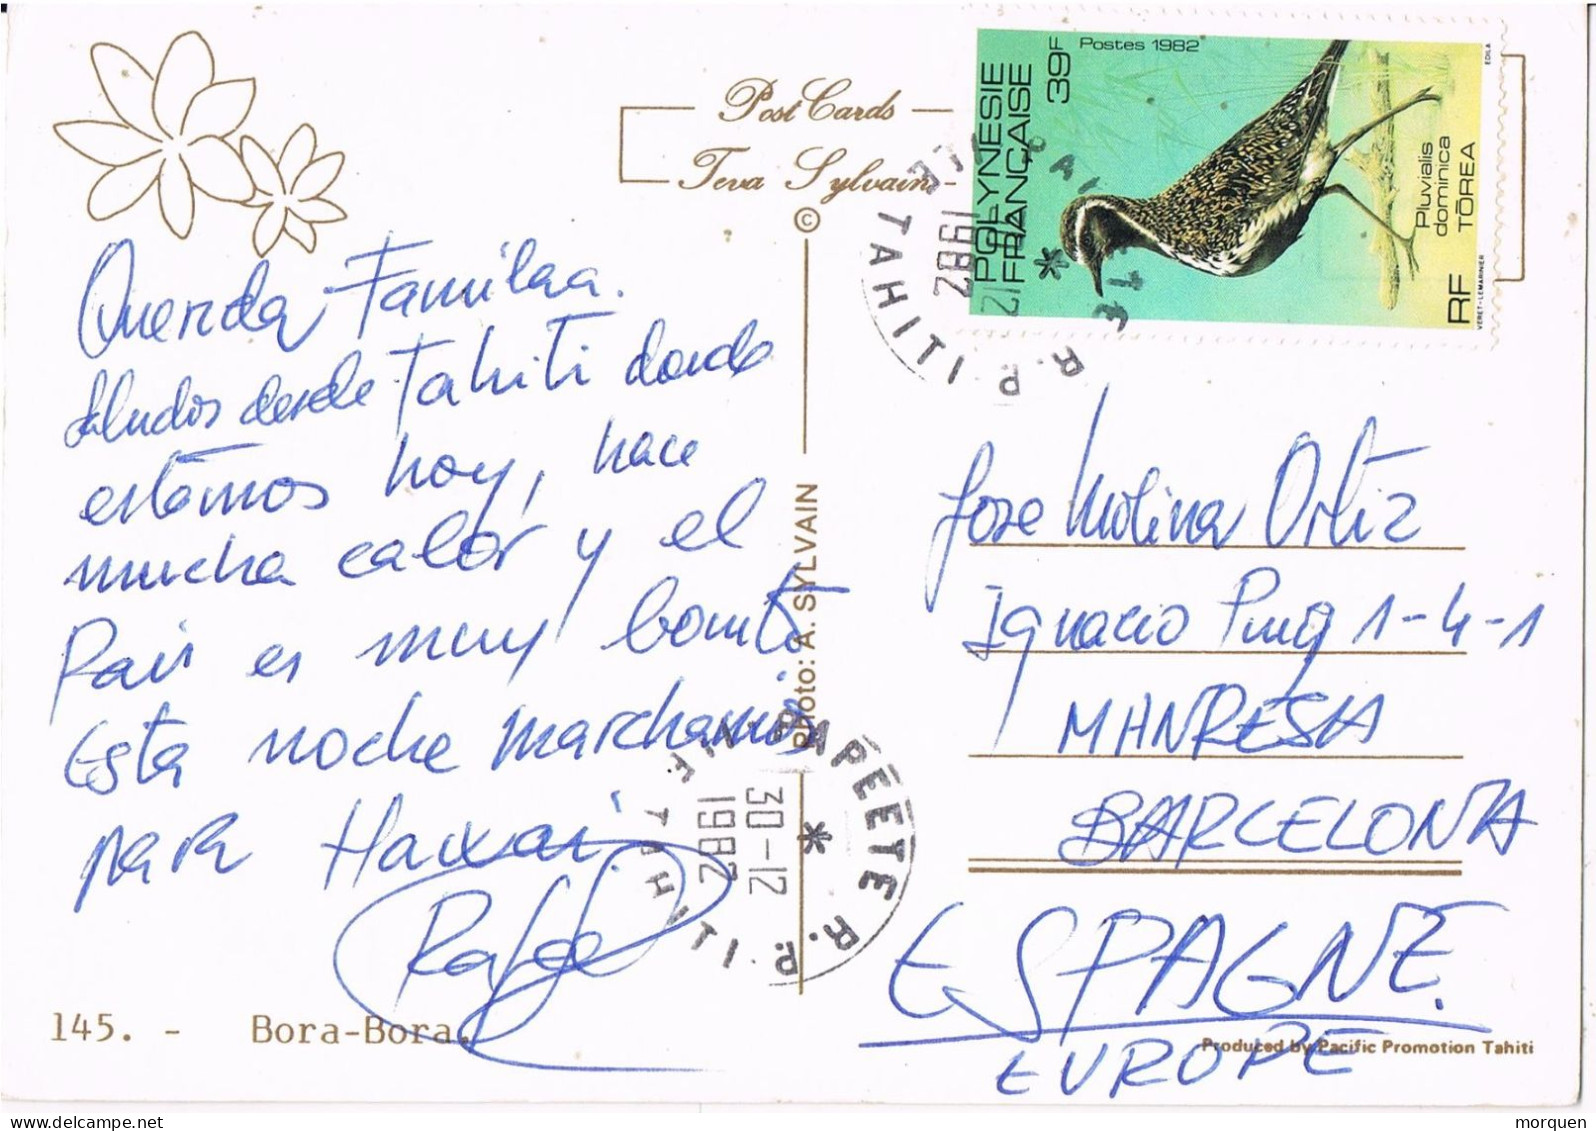 Post Cards
Teva Sylvain
©
Photo: A. SYLVAIN
Querida Familaa.
saludos desde Tahiti donde
estamos hoy, hace
mucha calor y el
Pais es muy bonito
Esta noche marchamos
para Hawai
Rafael
145. - Bora-Bora.
POLYNESIE
FRANÇAISE
39F
Postes 1982
Pluvialis
dominica
TŌREA
RF
EDILA
VERET-LEMARINIER
1982
R.P. ILE TAHITI
PAPEETE R.P.
30-12
1982
ILE TAHITI
Jose Molina Ortiz
Ignacio Puig 1-4-1
MANRESA
BARCELONA
ESPAGNE.
EUROPE
Produced by Pacific Promotion Tahiti
morquen